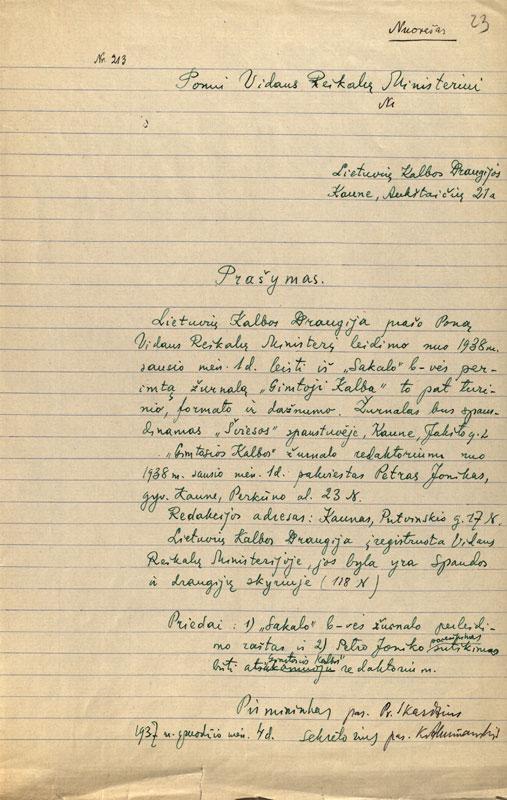 Nuorašas 23
Nr. 213
Ponui Vidaus Reikalų Ministeriui
Nr
Lietuvių Kalbos Draugijos
Kaune, Aukštaičių 21a
Prašymas.
Lietuvių Kalbos Draugija prašo Poną
Vidaus Reikalų Ministerį leidimo nuo 1938 m.
sausio mėn. 1 d. leisti iš „Sakalo" b-vės per-
imtą žurnalą „Gimtoji Kalba" to pat turi-
nio, formato ir dažnumo. Žurnalas bus spaus-
dinamas „Šviesos" spaustuvėje, Kaune, Jakšto g. 2
„Gimtosios Kalbos" žurnalo redaktorium nuo
1938 m. sausio mėn. 1 d. pakviestas Petras Jonikas,
gyv. Kaune, Perkūno al. 23 N.
Redakcijos adresas: Kaunas, Putvinskio g. 17 N.
Lietuvių Kalbos Draugija įregistruota Vidaus
Reikalų Ministerijoje, jos byla yra Spaudos
ir draugijų skyriuje (118 N)
Priedai: 1) „Sakalo" b-vės žurnalo perleidi-
mo raštas ir 2) Petro Joniko sutikimas
būti „Gimtosios Kalbos" redaktorium.
Pirmininkas pas. Pr. Skardžius
1937 m. gruodžio mėn. 4 d. Sekretorius pas.